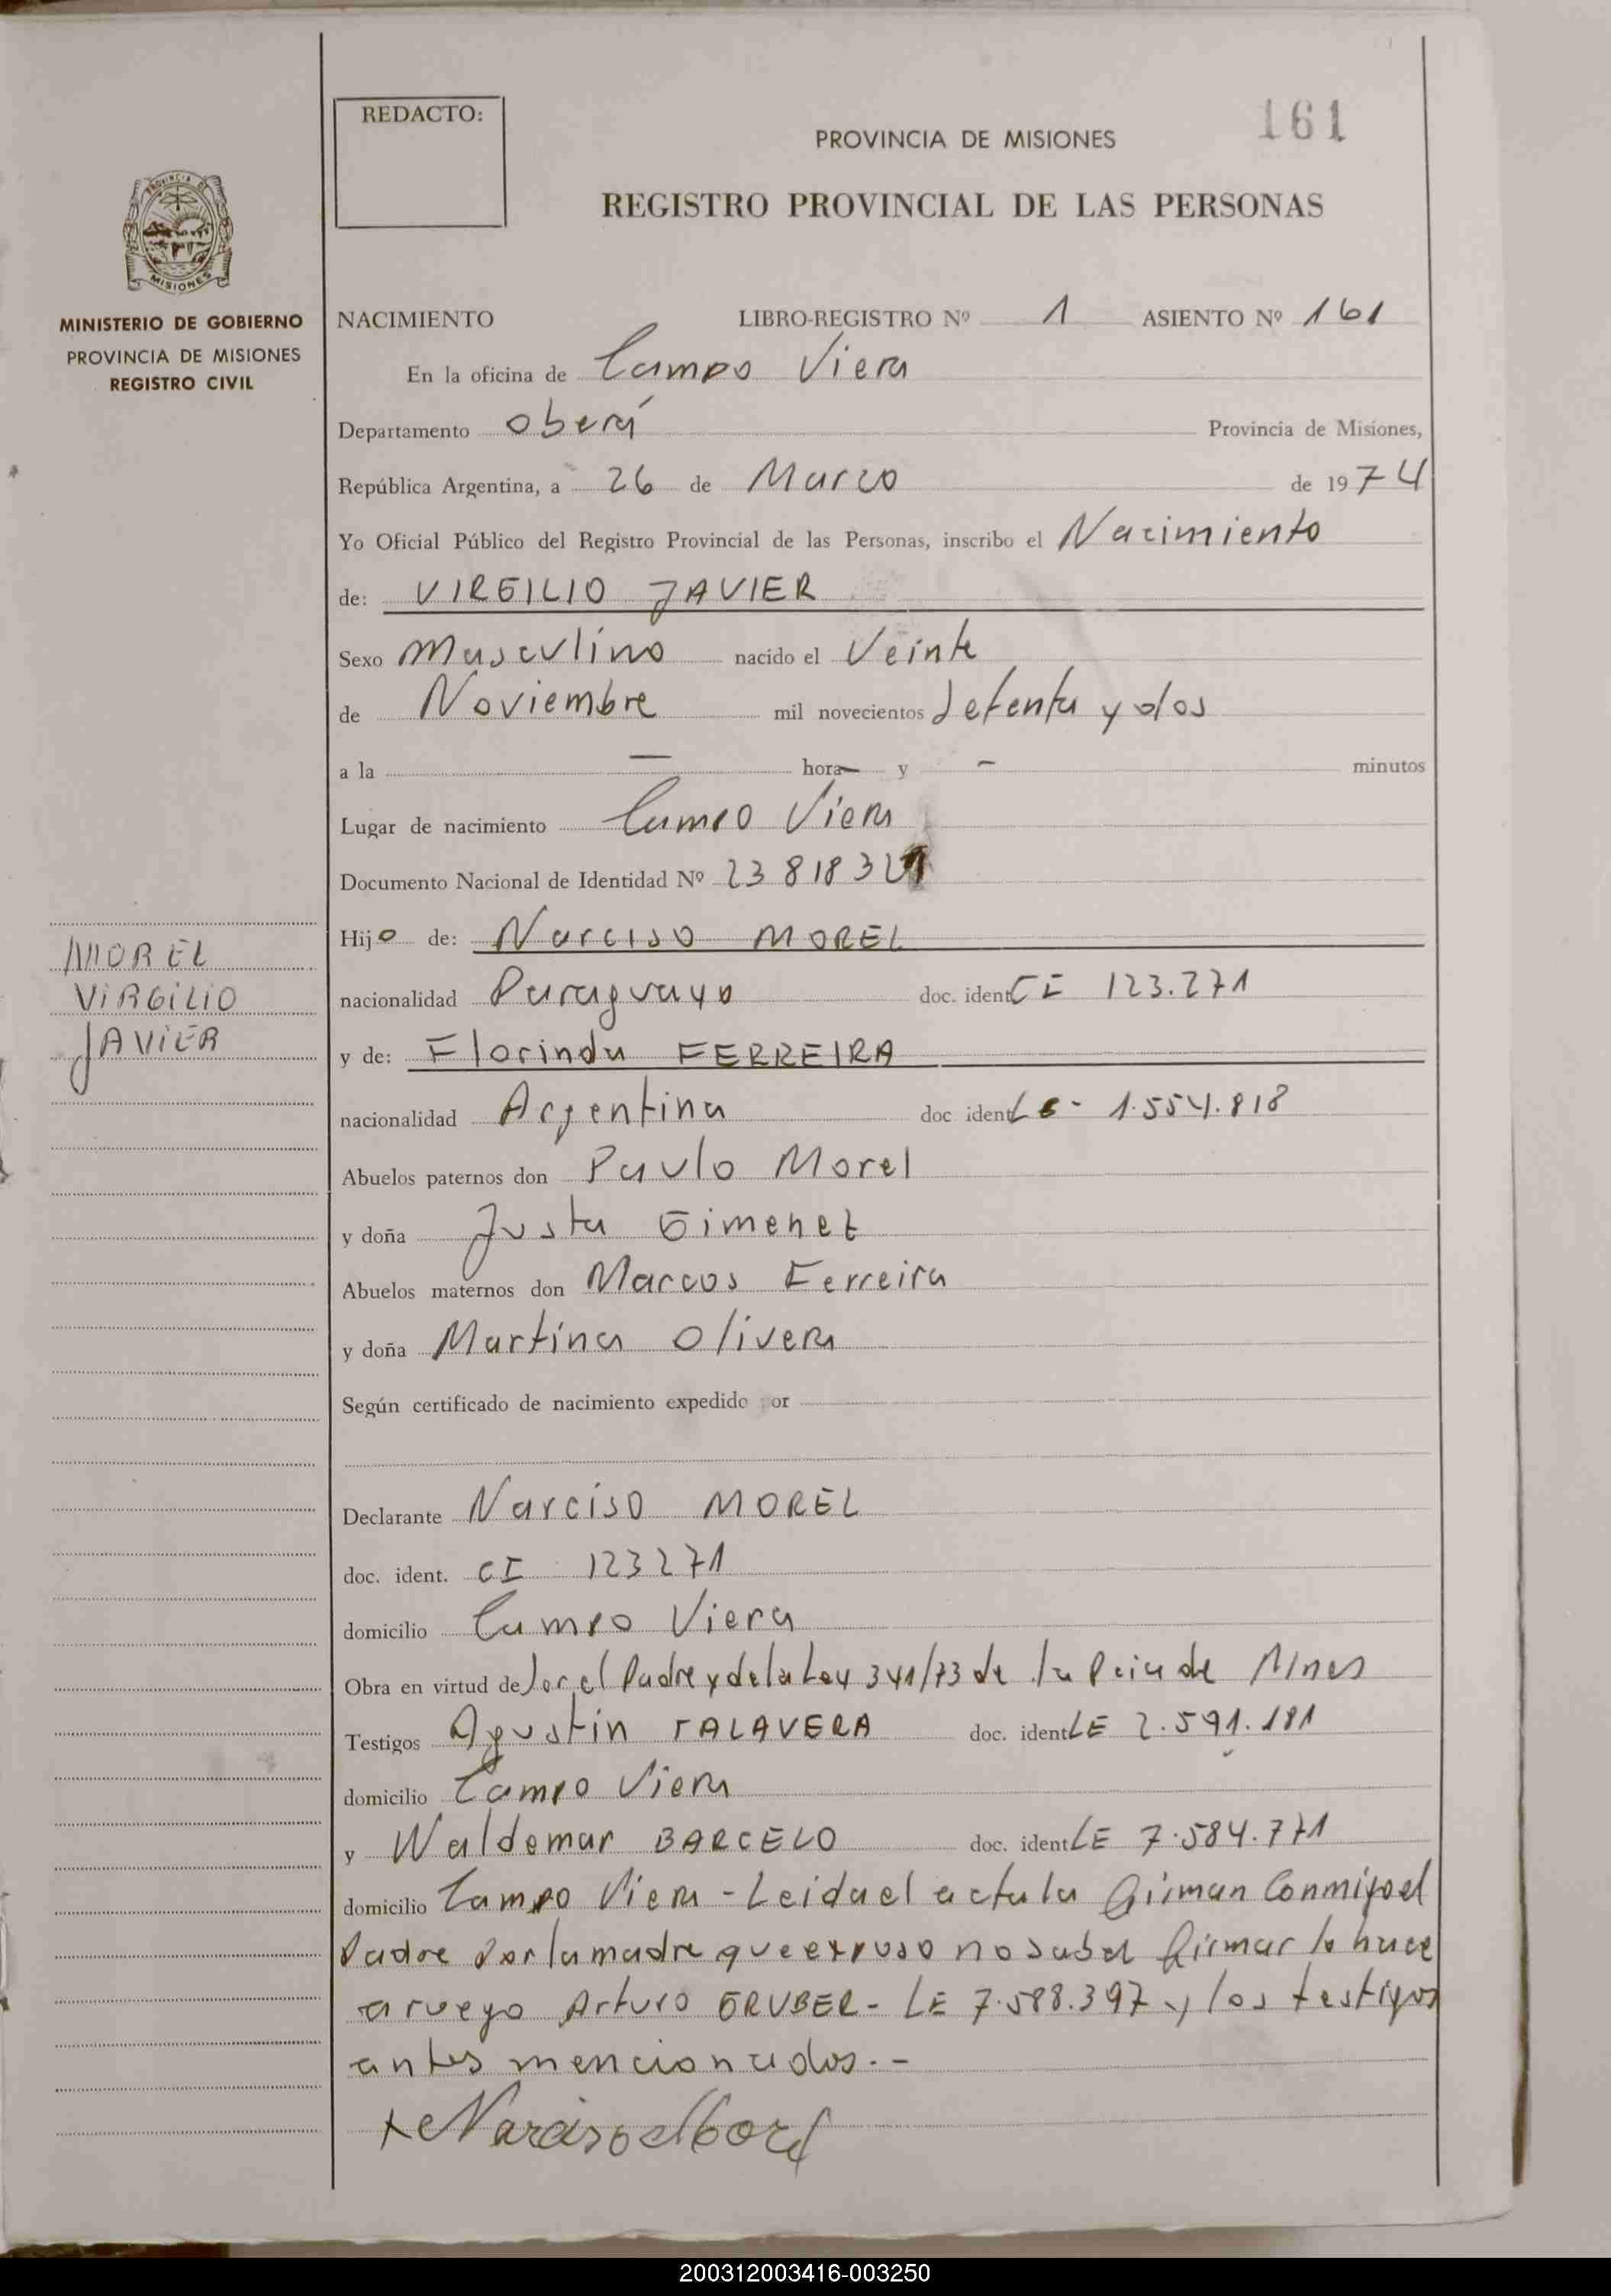 REDACTO:
161
PROVINCIA DE MISIONES
REGISTRO PROVINCIAL DE LAS PERSONAS
PROVINCIA DE
MISIONES
MINISTERIO DE GOBIERNO
PROVINCIA DE MISIONES
REGISTRO CIVIL
NACIMIENTO LIBRO-REGISTRO Nº 1 ASIENTO Nº 161
En la oficina de Campo Viera
Departamento Oberá Provincia de Misiones,
República Argentina, a 26 de Marzo de 1974
Yo Oficial Público del Registro Provincial de las Personas, inscribo el Nacimiento
de: VIRGILIO JAVIER
Sexo Masculino nacido el Veinte
de Noviembre mil novecientos Setenta y dos
a la — hora— y - minutos
Lugar de nacimiento Campo Viera
Documento Nacional de Identidad Nº 23 818 3
Hijo de: Narciso MOREL
nacionalidad Paraguayo doc. ident CI 123.271
y de: Florinda FERREIRA
nacionalidad Argentina doc. ident 1.554.818
Abuelos paternos don Paulo Morel
y doña Justa Gimenez
Abuelos maternos don Marcos Ferreira
y doña Martina Olivera
Según certificado de nacimiento expedido or
Declarante Narciso MOREL
doc. ident. CI 123271
domicilio Campo Viera
Obra en virtud de Ser el Padre y de la Ley 341/73 de la Pcia de Mnes
Testigos Agustin TALAVERA doc. ident LE 2.591.181
domicilio Campo Viera
y Waldemar BARCELO doc. ident LE 7.584.771
domicilio Campo Viera - Leida el acta la firman Conmigo el
Padre Por la madre que expuso no saber firmar lo hace
a ruego Arturo GRUBER - LE 7.588.397 y los testigos
antes mencionados.-
x Narciso Morel
MOREL
VIRGILIO
JAVIER
200312003416-003250